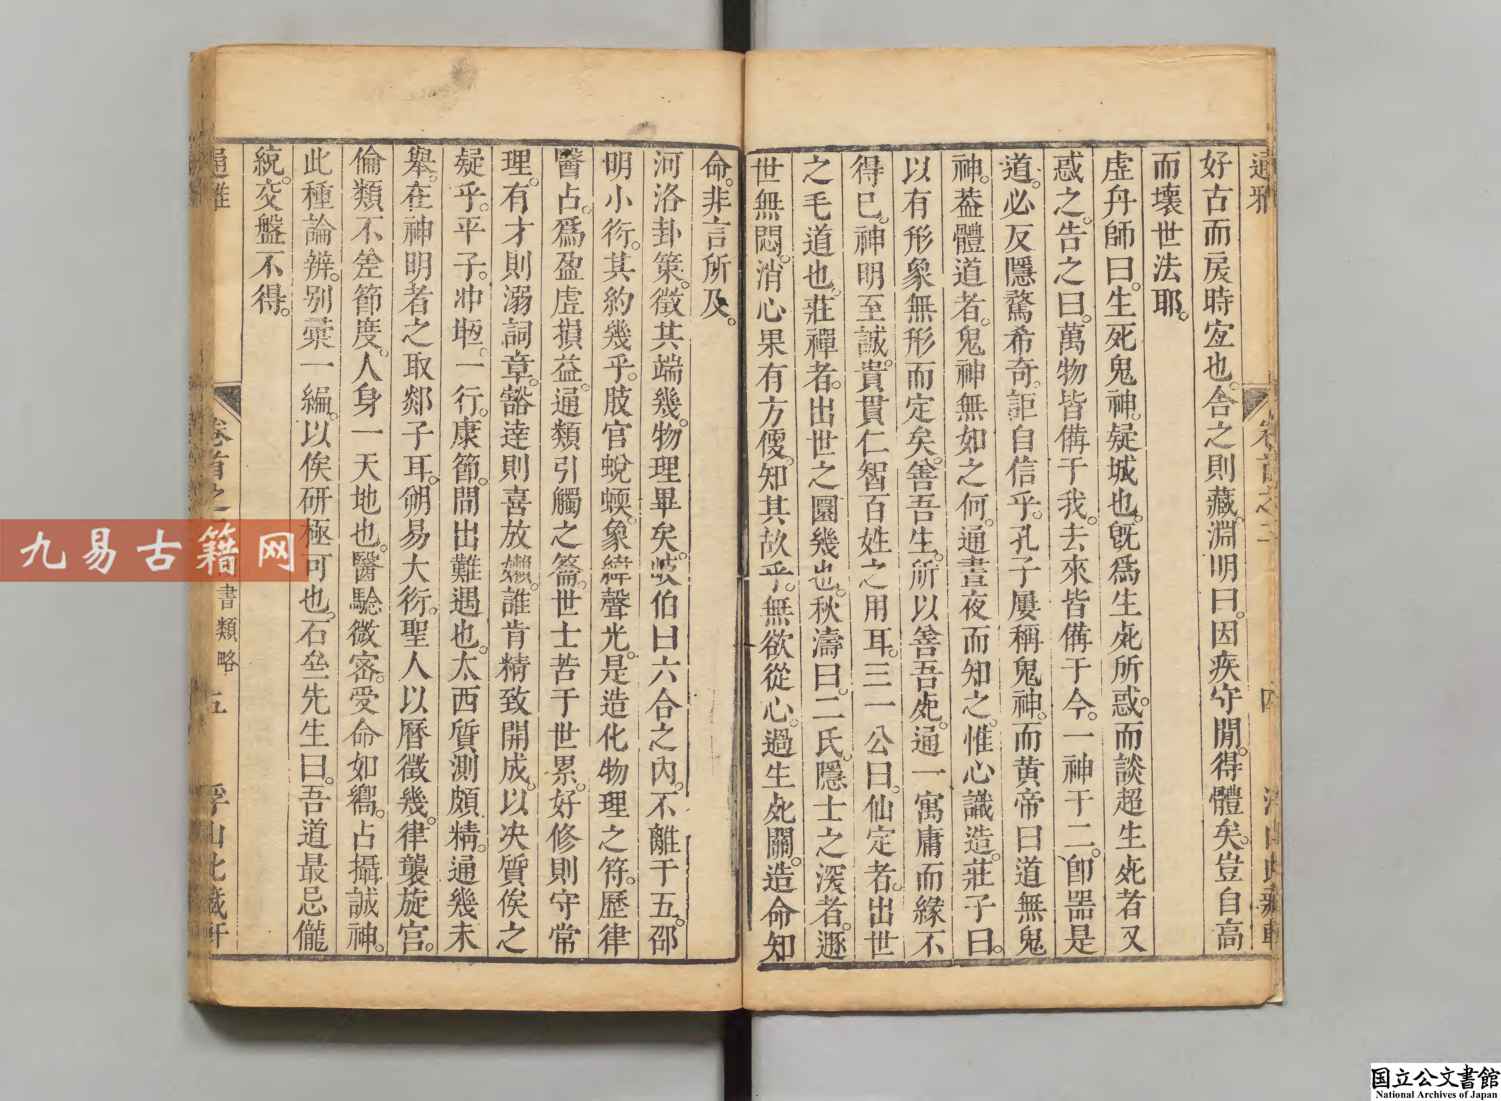 通雅 卷首之二 四 浮山此藏軒
好古而戾時宜也舍之則藏淵明曰因疾守閒得體矣豈自高
而壞世法耶
虛舟師曰生死鬼神疑城也旣爲生死所惑而談超生死者又
惑之告之曰萬物皆備于我去來皆備于今一神于二卽器是
道必反隱驚希奇詎自信乎孔子屢稱鬼神而黃帝曰道無鬼
神葢體道者鬼神無如之何通晝夜而知之惟心識造莊子曰
以有形象無形而定矣善吾生所以善吾死通一寓庸而緣不
得已神明至誠貴貫仁智百姓之用耳三一公曰仙定者出世
之毛道也莊禪者出世之圜幾也秋濤曰二氏隱士之深者遯
世無悶消心果有方便知其故乎無欲從心過生死關造命知
命非言所及
河洛卦策徵其端幾物理畢矣岐伯曰六合之內不離于五邵
明小衍其約幾乎肢官蛻蝡象緯聲光是造化物理之符歷律
醫占爲盈虛損益通類引觸之籥世士苦于世累好修則守常
理有才則溺詞章豁達則喜放嬾誰肯精致開成以決質俟之
疑乎平子冲𣆀一行康節間出難遇也太西質測頗精通幾未
舉在神明者之取郯子耳朔易大衍聖人以曆徵幾律襲旋宮
倫類不差節度人身一天地也醫驗徵密受命如嚮占攝誠神
此種論辨別彙一編以俟研極可也石坴先生曰吾道最忌儱
統交盤不得
通雅 卷首之 書類略 五 浮山此藏軒
九易古籍网
国立公文書館
National Archives of Japan